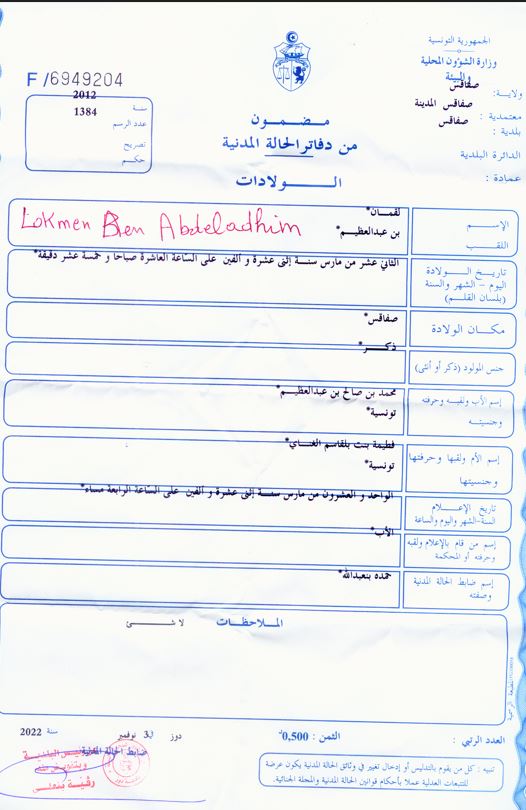 الجمهورية التونسية
وزارة الشؤون المحلية
والبيئة
ولاية: صفاقس
معتمدية: صفاقس المدينة
بلدية: صفاقس
الدائرة البلدية
عمادة:
F/6949204
سنة 2012
عدد الرسم 1384
تصريح
حكم
مضمون
من دفاتر الحالة المدنية
الولادات
الإسم لقمان*
اللقب بن عبدالعظيم*
Lokmen Ben Abdeladhim
تاريخ الولادة
اليوم - الشهر والسنة
(بلسان القلم)
الثاني عشر من مارس سنة إثنى عشرة و ألفين على الساعة العاشرة صباحا و خمسة عشر دقيقة*
مكان الولادة صفاقس*
جنس المولود (ذكر أو أنثى) ذكر*
إسم الأب ولقبه وحرفته محمد بن صالح بن عبدالعظيم*
وجنسيته تونسية*
إسم الأم ولقبها وحرفتها فطيمة بنت بلقاسم الغناي*
وجنسيتها تونسية*
تاريخ الإعلام
السنة-الشهر واليوم والساعة
الواحد و العشرون من مارس سنة إثنى عشرة و ألفين على الساعة الرابعة مساء*
إسم من قام بالإعلام ولقبه
وحرفته أو المحكمة
الأب*
إسم ضابط الحالة المدنية
وصفته
حمده بنعبدالله*
الملاحظات لا شئ
العدد الرتبي:
الثمن: 0,500د
3 نوفمبر سنة 2022
ضابط الحالة المدنية
تنبيه: كل من يقوم بالتدليس أو إدخال تغيير في وثائق الحالة المدنية يكون عرضة
للتتبعات العدلية عملا بأحكام قوانين الحالة المدنية والمجلة الجنائية.